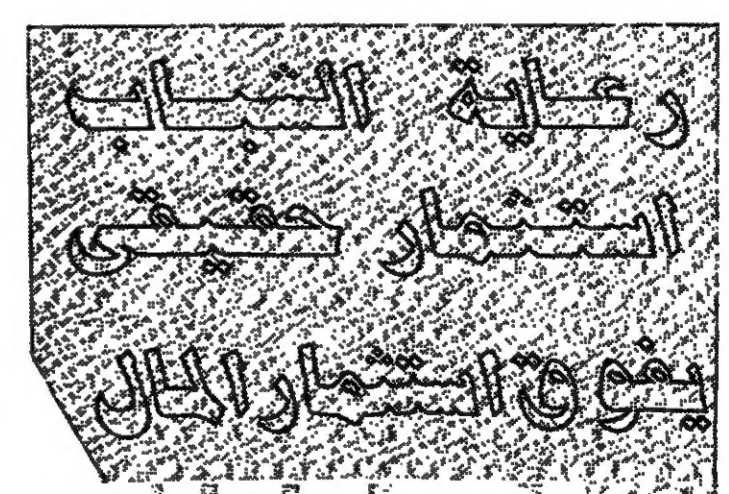 رعاية الشباب
استثمار حقيقى
يفوق استثمار المال